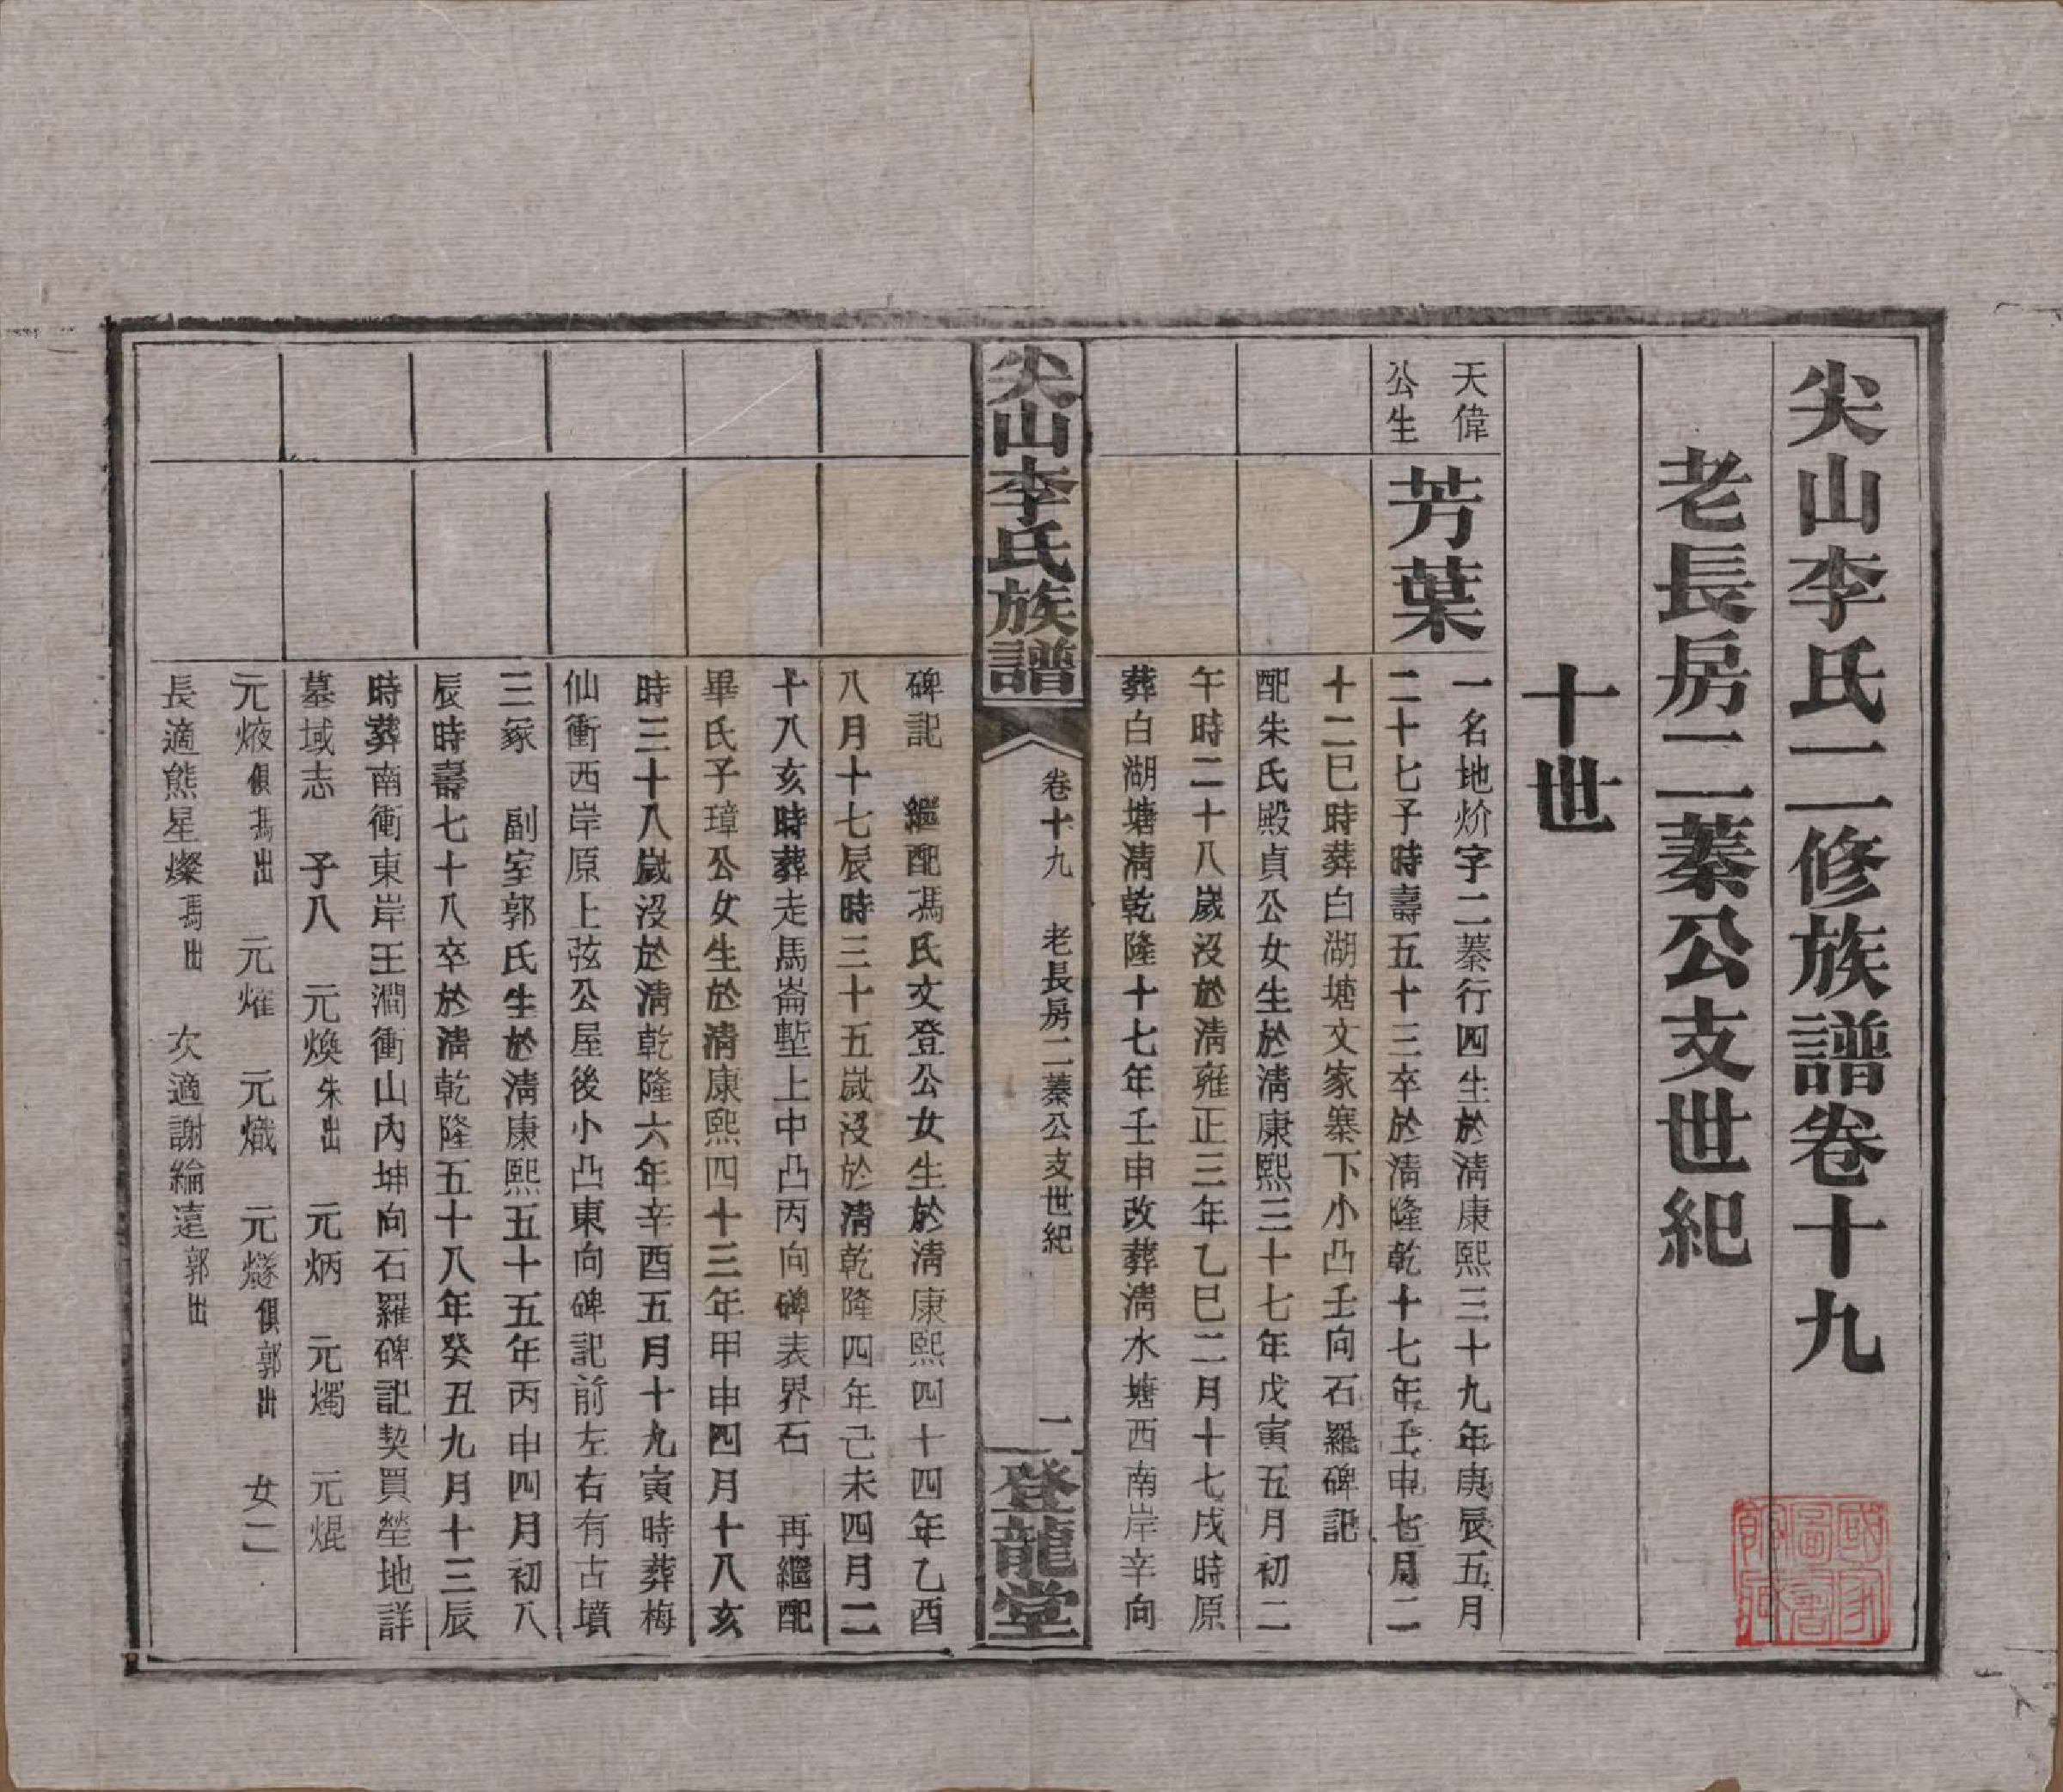 尖山李氏二修族譜卷十九
老長房二蓁公支世紀
十世
天偉
公生
芳葉
一名地炌字二蓁行四生於淸康熙三十九年庚辰五月
二十七子時壽五十三卒於淸隆乾十七年壬申七月二
十二巳時葬白湖塘文家寨下小凸壬向石羅碑記
配朱氏殿貞公女生於淸康熙三十七年戊寅五月初二
午時二十八歲沒於淸雍正三年乙巳二月十七戌時原
葬白湖塘淸乾隆十七年壬申改葬淸水塘西南岸辛向
尖山李氏族譜
卷十九
老長房二蓁公支世紀
一
登龍堂
碑記 繼配馮氏文登公女生於淸康熙四十四年乙酉
八月十七辰時三十五歲沒於淸乾隆四年己未四月二
十八亥時葬走馬崙塹上中凸丙向碑表界石 再繼配
畢氏子璋公女生於淸康熙四十三年甲申四月十八亥
時三十八歲沒於淸乾隆六年辛酉五月十九寅時葬梅
仙衝西岸原上弦公屋後小凸東向碑記前左右有古墳
三冢 副室郭氏生於淸康熙五十五年丙申四月初八
辰時壽七十八卒於淸乾隆五十八年癸丑九月十三辰
時葬南衝東岸王澗衝山內坤向石羅碑記契買塋地詳
墓域志 子八 元煥朱出 元炳 元燭 元焜
元焲俱馮出 元燿 元熾 元燧俱郭出 女二
長適熊星燦馮出 次適謝綸遠郭出
國家圖書館藏